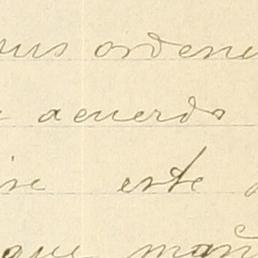 sus ordene
acuerdo
este
que mañ